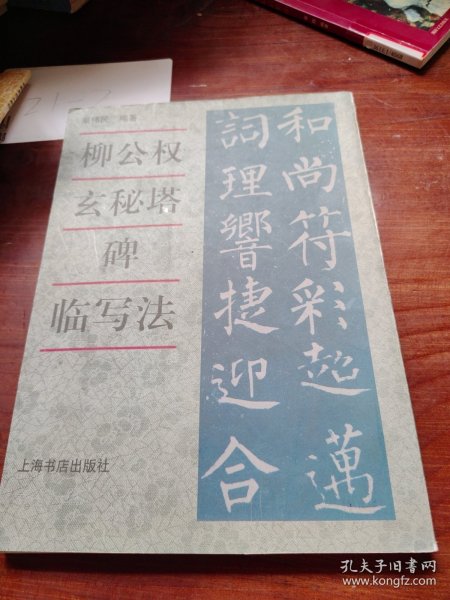 编著
柳公权
玄秘塔
碑
临写法
上海书店出版社
和尚符彩超邁
詞理響捷迎合
孔夫子旧书网
www.kongfz.com